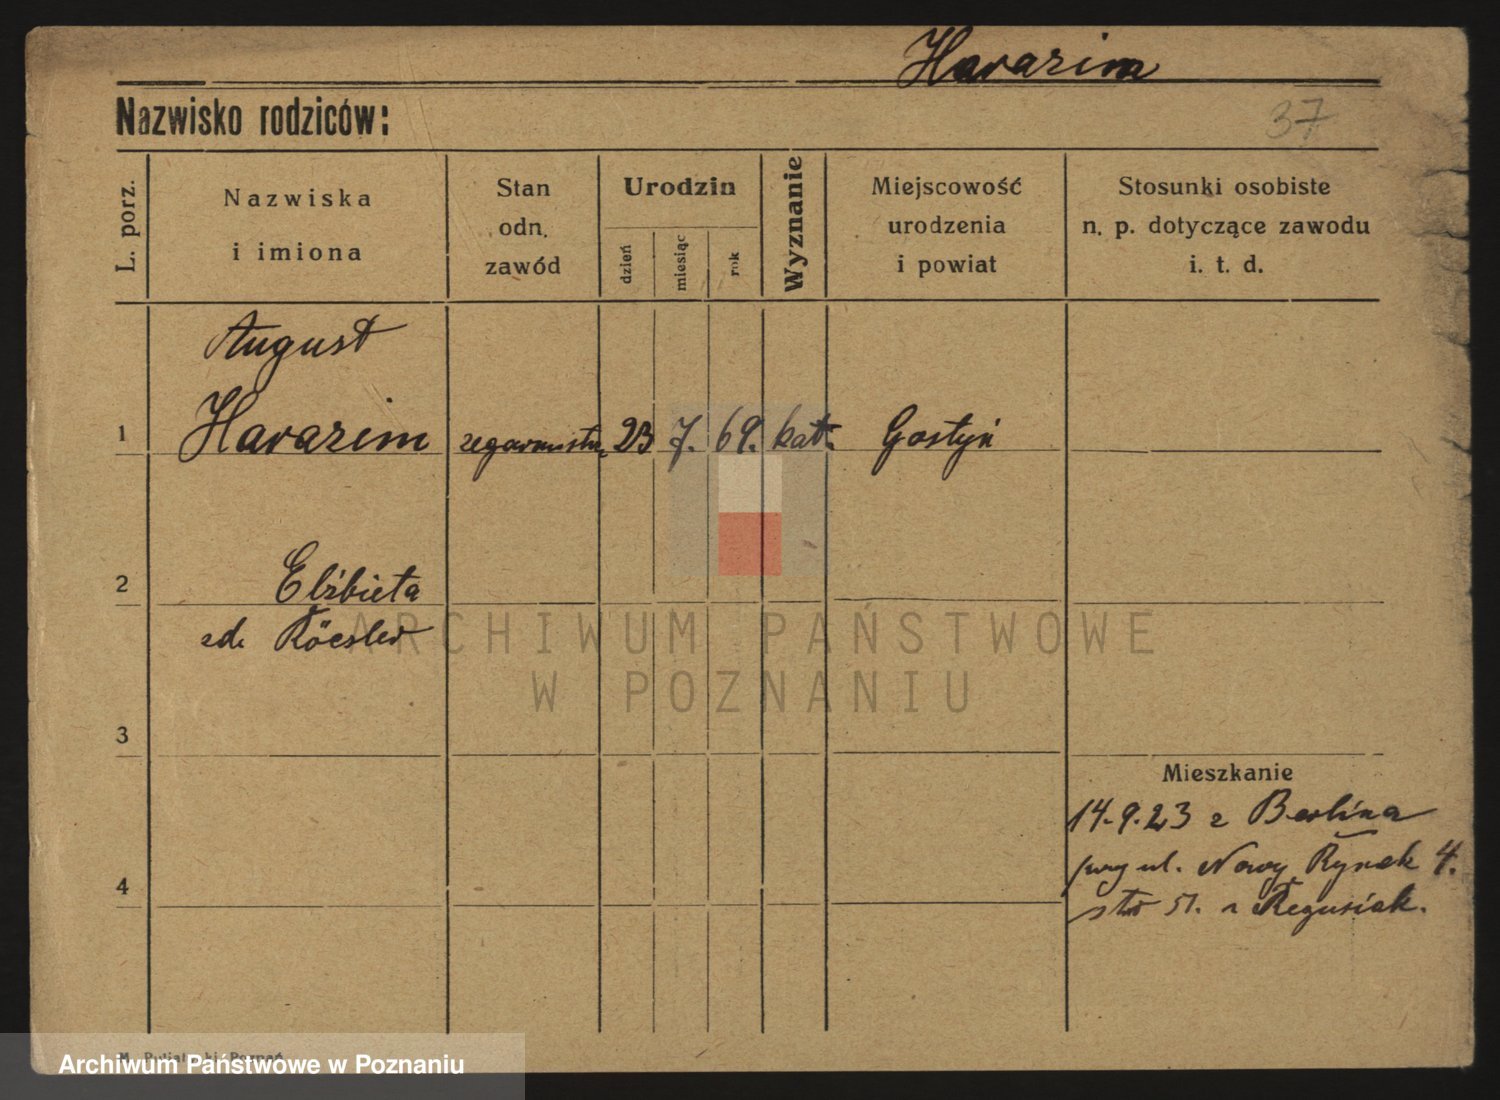 Harazim
Nazwisko rodziców:
37
L. porz.
Nazwiska
i imiona
Stan
odn.
zawód
Urodzin
dzień
miesiąc
rok
Wyznanie
Miejscowość
urodzenia
i powiat
Stosunki osobiste
n. p. dotyczące zawodu
i. t. d.
August
1 Harazim zegarmistrz 23 7. 69. kat. Gostyń
2 Elżbieta
zd. Röesler
ARCHIWUM PAŃSTWOWE
W POZNANIU
3
Mieszkanie
14.9.23 z Berlina
przy ul. Nowy Rynek 4.
4
Archiwum Państwowe w Poznaniu